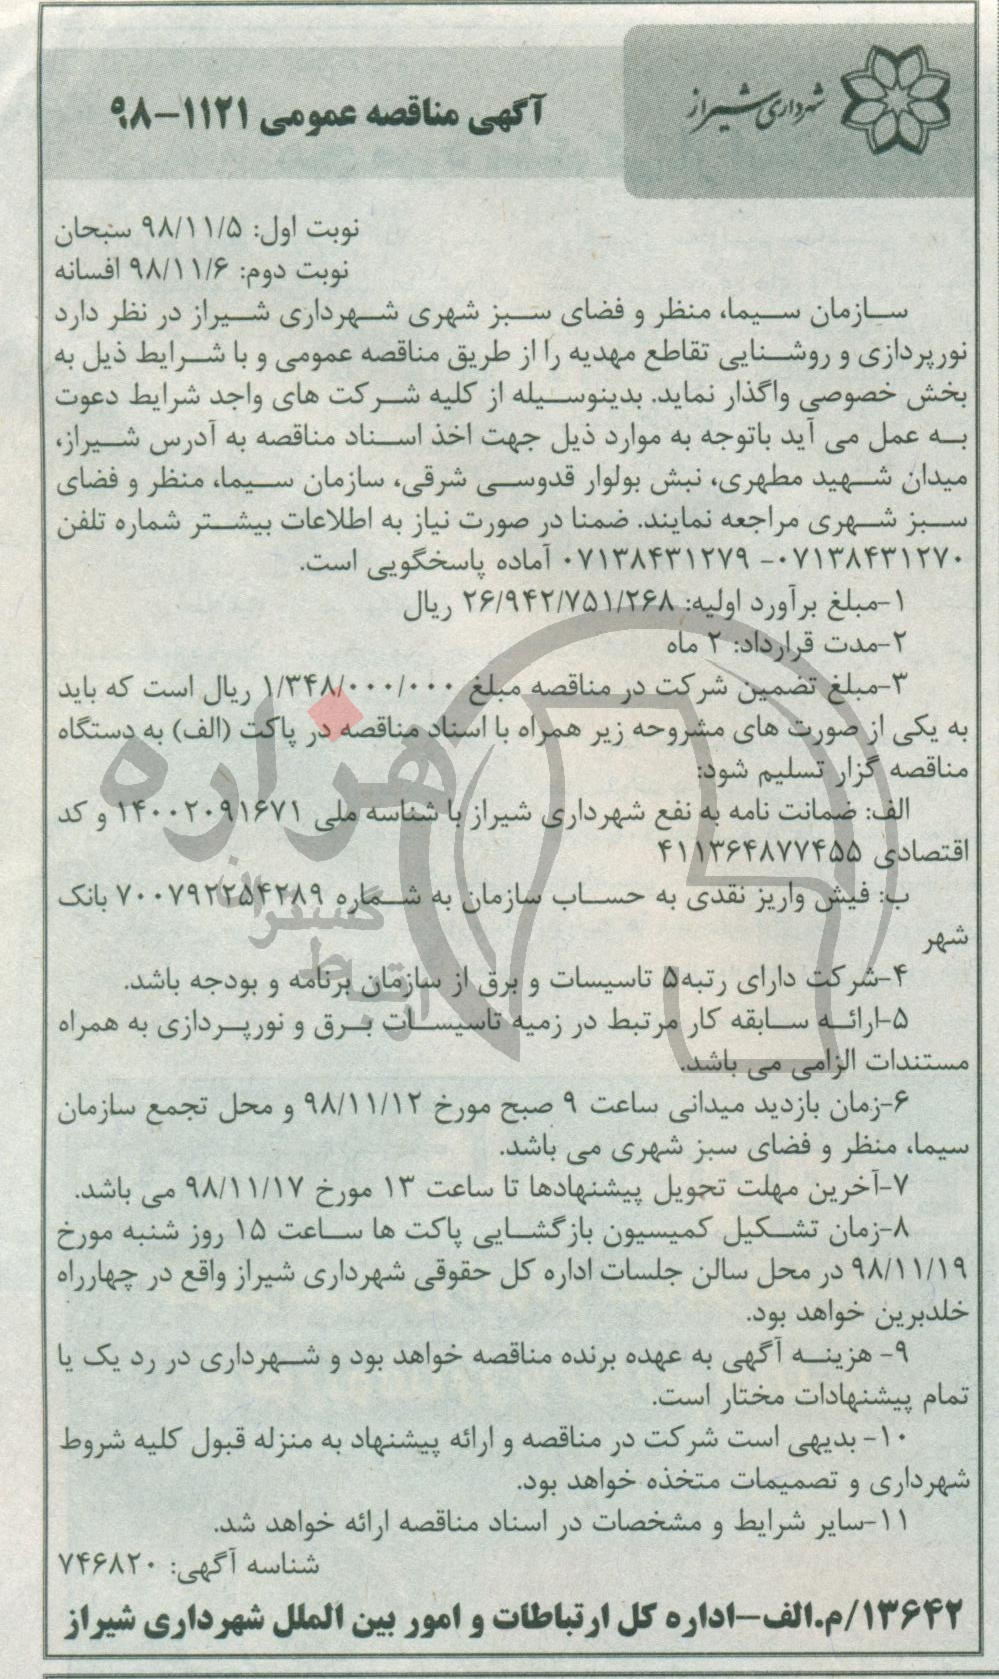 شهرداری شیراز
آگهی مناقصه عمومی ۱۱۲۱-۹۸
نوبت اول: ۹۸/۱۱/۵ سبحان
نوبت دوم: ۹۸/۱۱/۶ افسانه
سازمان سیما، منظر و فضای سبز شهری شهرداری شیراز در نظر دارد
نورپردازی و روشنایی تقاطع مهدیه را از طریق مناقصه عمومی و با شرایط ذیل به
بخش خصوصی واگذار نماید. بدینوسیله از کلیه شرکت های واجد شرایط دعوت
به عمل می آید باتوجه به موارد ذیل جهت اخذ اسناد مناقصه به آدرس شیراز،
میدان شهید مطهری، نبش بولوار قدوسی شرقی، سازمان سیما، منظر و فضای
سبز شهری مراجعه نمایند. ضمنا در صورت نیاز به اطلاعات بیشتر شماره تلفن
۰۷۱۳۸۴۳۱۲۷۰- ۰۷۱۳۸۴۳۱۲۷۹ آماده پاسخگویی است.
۱-مبلغ برآورد اولیه: ۲۶/۹۴۲/۷۵۱/۲۶۸ ریال
۲-مدت قرارداد: ۲ ماه
۳-مبلغ تضمین شرکت در مناقصه مبلغ ۱/۳۴۸/۰۰۰/۰۰۰ ریال است که باید
به یکی از صورت های مشروحه زیر همراه با اسناد مناقصه در پاکت (الف) به دستگاه
مناقصه گزار تسلیم شود:
الف: ضمانت نامه به نفع شهرداری شیراز با شناسه ملی ۱۴۰۰۲۰۹۱۶۷۱ و کد
اقتصادی ۴۱۱۳۶۴۸۷۷۴۵۵
ب: فیش واریز نقدی به حساب سازمان به شماره ۷۰۰۷۹۲۲۵۴۲۸۹ بانک
شهر
۴-شرکت دارای رتبه۵ تاسیسات و برق از سازمان برنامه و بودجه باشد.
۵-ارائه سابقه کار مرتبط در زمیه تاسیسات برق و نورپردازی به همراه
مستندات الزامی می باشد.
۶-زمان بازدید میدانی ساعت ۹ صبح مورخ ۹۸/۱۱/۱۲ و محل تجمع سازمان
سیما، منظر و فضای سبز شهری می باشد.
۷-آخرین مهلت تحویل پیشنهادها تا ساعت ۱۳ مورخ ۹۸/۱۱/۱۷ می باشد.
۸-زمان تشکیل کمیسیون بازگشایی پاکت ها ساعت ۱۵ روز شنبه مورخ
۹۸/۱۱/۱۹ در محل سالن جلسات اداره کل حقوقی شهرداری شیراز واقع در چهارراه
خلدبرین خواهد بود.
۹- هزینه آگهی به عهده برنده مناقصه خواهد بود و شهرداری در رد یک یا
تمام پیشنهادات مختار است.
۱۰- بدیهی است شرکت در مناقصه و ارائه پیشنهاد به منزله قبول کلیه شروط
شهرداری و تصمیمات متخذه خواهد بود.
۱۱-سایر شرایط و مشخصات در اسناد مناقصه ارائه خواهد شد.
شناسه آگهی: ۷۴۶۸۲۰
۱۳۶۴۲/م.الف-اداره کل ارتباطات و امور بین الملل شهرداری شیراز
هزاره